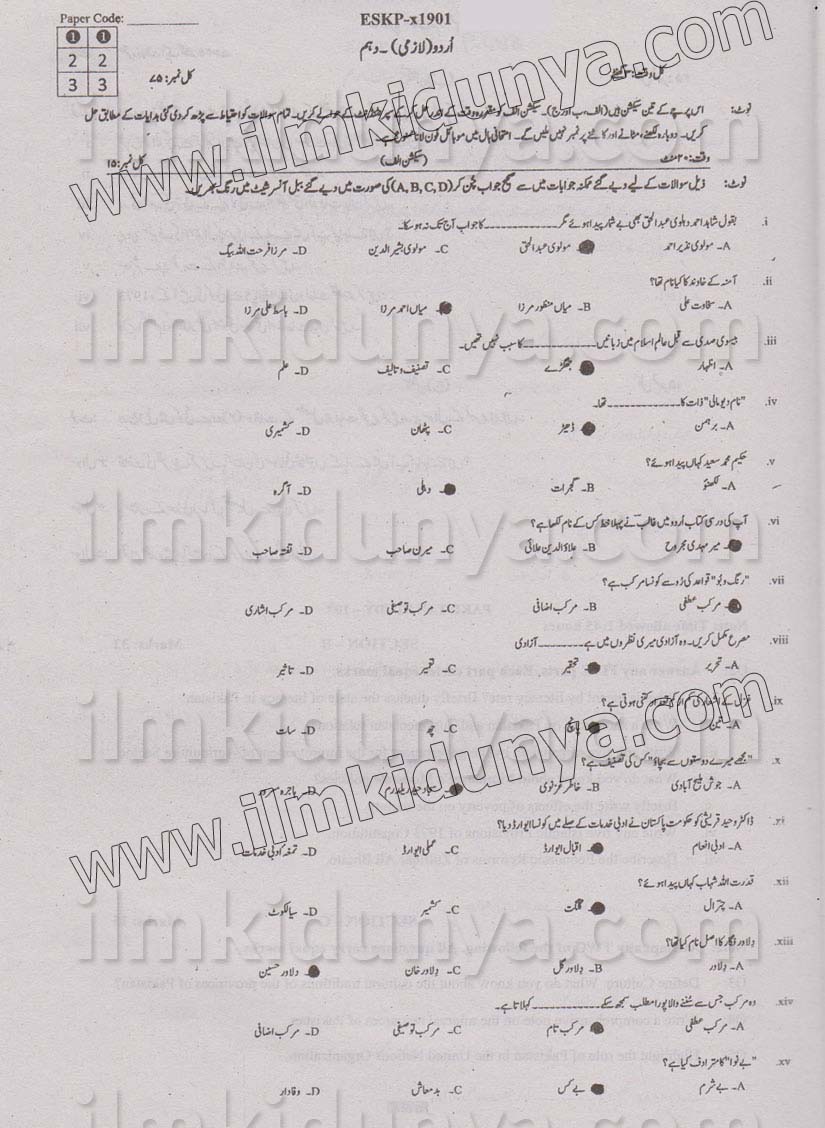 Paper Code: ____________
ESKP-x1901
اُردو(لازمی)۔ دہم
1 1
2 2
3 3
کل نمبر: ۷۵
نوٹ: اس پرچے کے تین سیکشن ہیں (الف، ب اور ج)۔ سیکشن الف کو مقررہ وقت کے اندر حل کر کے سپرنٹنڈنٹ کے حوالے کریں۔ تمام سوالات کو احتیاط سے پڑھ کر دی گئی ہدایات کے مطابق حل
کریں۔ دوبارہ لکھنے، مٹانے اور کاٹنے پر نمبر نہیں ملیں گے۔ امتحانی ہال میں موبائل فون لانا ممنوع ہے۔
وقت: ۲۰ منٹ (سیکشن الف) کل نمبر: ۱۵
نوٹ: ذیل سوالات کے لیے دیے گئے ممکنہ جوابات میں سے صحیح جواب چُن کر (A, B, C, D) کی صورت میں دیے گئے ببل آنسر شیٹ میں رنگ بھریں۔
i. بقول شاہد احمد دہلوی عبدالحق بھی بے شمار پیدا ہوئے مگر __________ کا جواب آج تک نہ ہو سکا۔
A۔ مولوی نذیر احمد مولوی عبدالحق C۔ مولوی بشیر الدین D۔ مرزا فرحت اللہ بیگ
ii. آمنہ کے خاوند کا کیا نام تھا؟
A۔ سخاوت علی B۔ میاں منظور مرزا میاں احمد مرزا D۔ باسط علی مرزا
iii. بیسوی صدی سے قبل عالم اسلام میں زبانیں __________ کا سبب نہیں تھیں۔
A۔ اظہار جھگڑے C۔ تصنیف و تالیف D۔ علم
iv. "نام دیو مالی" ذات کا __________ تھا۔
A۔ برہمن ڈھیڑ C۔ پٹھان D۔ کشمیری
v. حکیم محمد سعید کہاں پیدا ہوئے؟
A۔ لکھنؤ B۔ گجرات دہلی D۔ آگرہ
vi. آپ کی درسی کتاب اُردو میں غالب نے پہلا خط کس کے نام لکھا ہے؟
میر مہدی مجروح B۔ علاؤالدین علائی C۔ میرن صاحب D۔ تفتہ صاحب
vii. "رنگ و بو" قواعد کی رُو سے کونسا مرکب ہے؟
مرکب عطفی B۔ مرکب اضافی C۔ مرکب توصیفی D۔ مرکب اشاری
viii. مصرع مکمل کریں۔ وہ آزادی میری نظروں میں ہے __________ آزادی
A۔ تحریر تحقیر C۔ تعمیر D۔ تاثیر
ix. غزل کے اشعار کی کم از کم تعداد کتنی ہوتی ہے؟
A۔ تین پانچ C۔ چھ D۔ سات
x. "مجھے میرے دوستوں سے بچاؤ" کس کی تصنیف ہے؟
A۔ جوش ملیح آبادی B۔ خاطر غزنوی سجاد حیدر یلدرم D۔ ہاجرہ مسرور
xi. ڈاکٹر وحید قریشی کو حکومت پاکستان نے ادبی خدمات کے صلے میں کونسا ایوارڈ دیا؟
A۔ ادبی انعام اقبال ایوارڈ C۔ عملی ایوارڈ D۔ تمغہ ادبی خدمات
xii. قدرت اللہ شہاب کہاں پیدا ہوئے؟
A۔ چترال گلگت C۔ کشمیر D۔ سیالکوٹ
xiii. دِلاور فگار کا اصل نام کیا تھا؟
A۔ دِلاور B۔ دِلاور گل C۔ دِلاور خان دلاور حسین
xiv. وہ مرکب جس سے سُننے والا پورا مطلب سمجھ سکے __________ کہلاتا ہے۔
A۔ مرکب عطفی مرکب تام C۔ مرکب توصیفی D۔ مرکب اضافی
xv. "بے نوا" کا مترادف کیا ہے؟
A۔ بے شرم بے کس C۔ بدمعاش D۔ وفادار
www.ilmkidunya.com
www.ilmkidunya.com
www.ilmkidunya.com
ilmkidunya.com
ilmkidunya.com
ilmkidunya.com
ilmkidunya.com
ilmkidunya.com
ilmkidunya.com
ilmkidunya.com